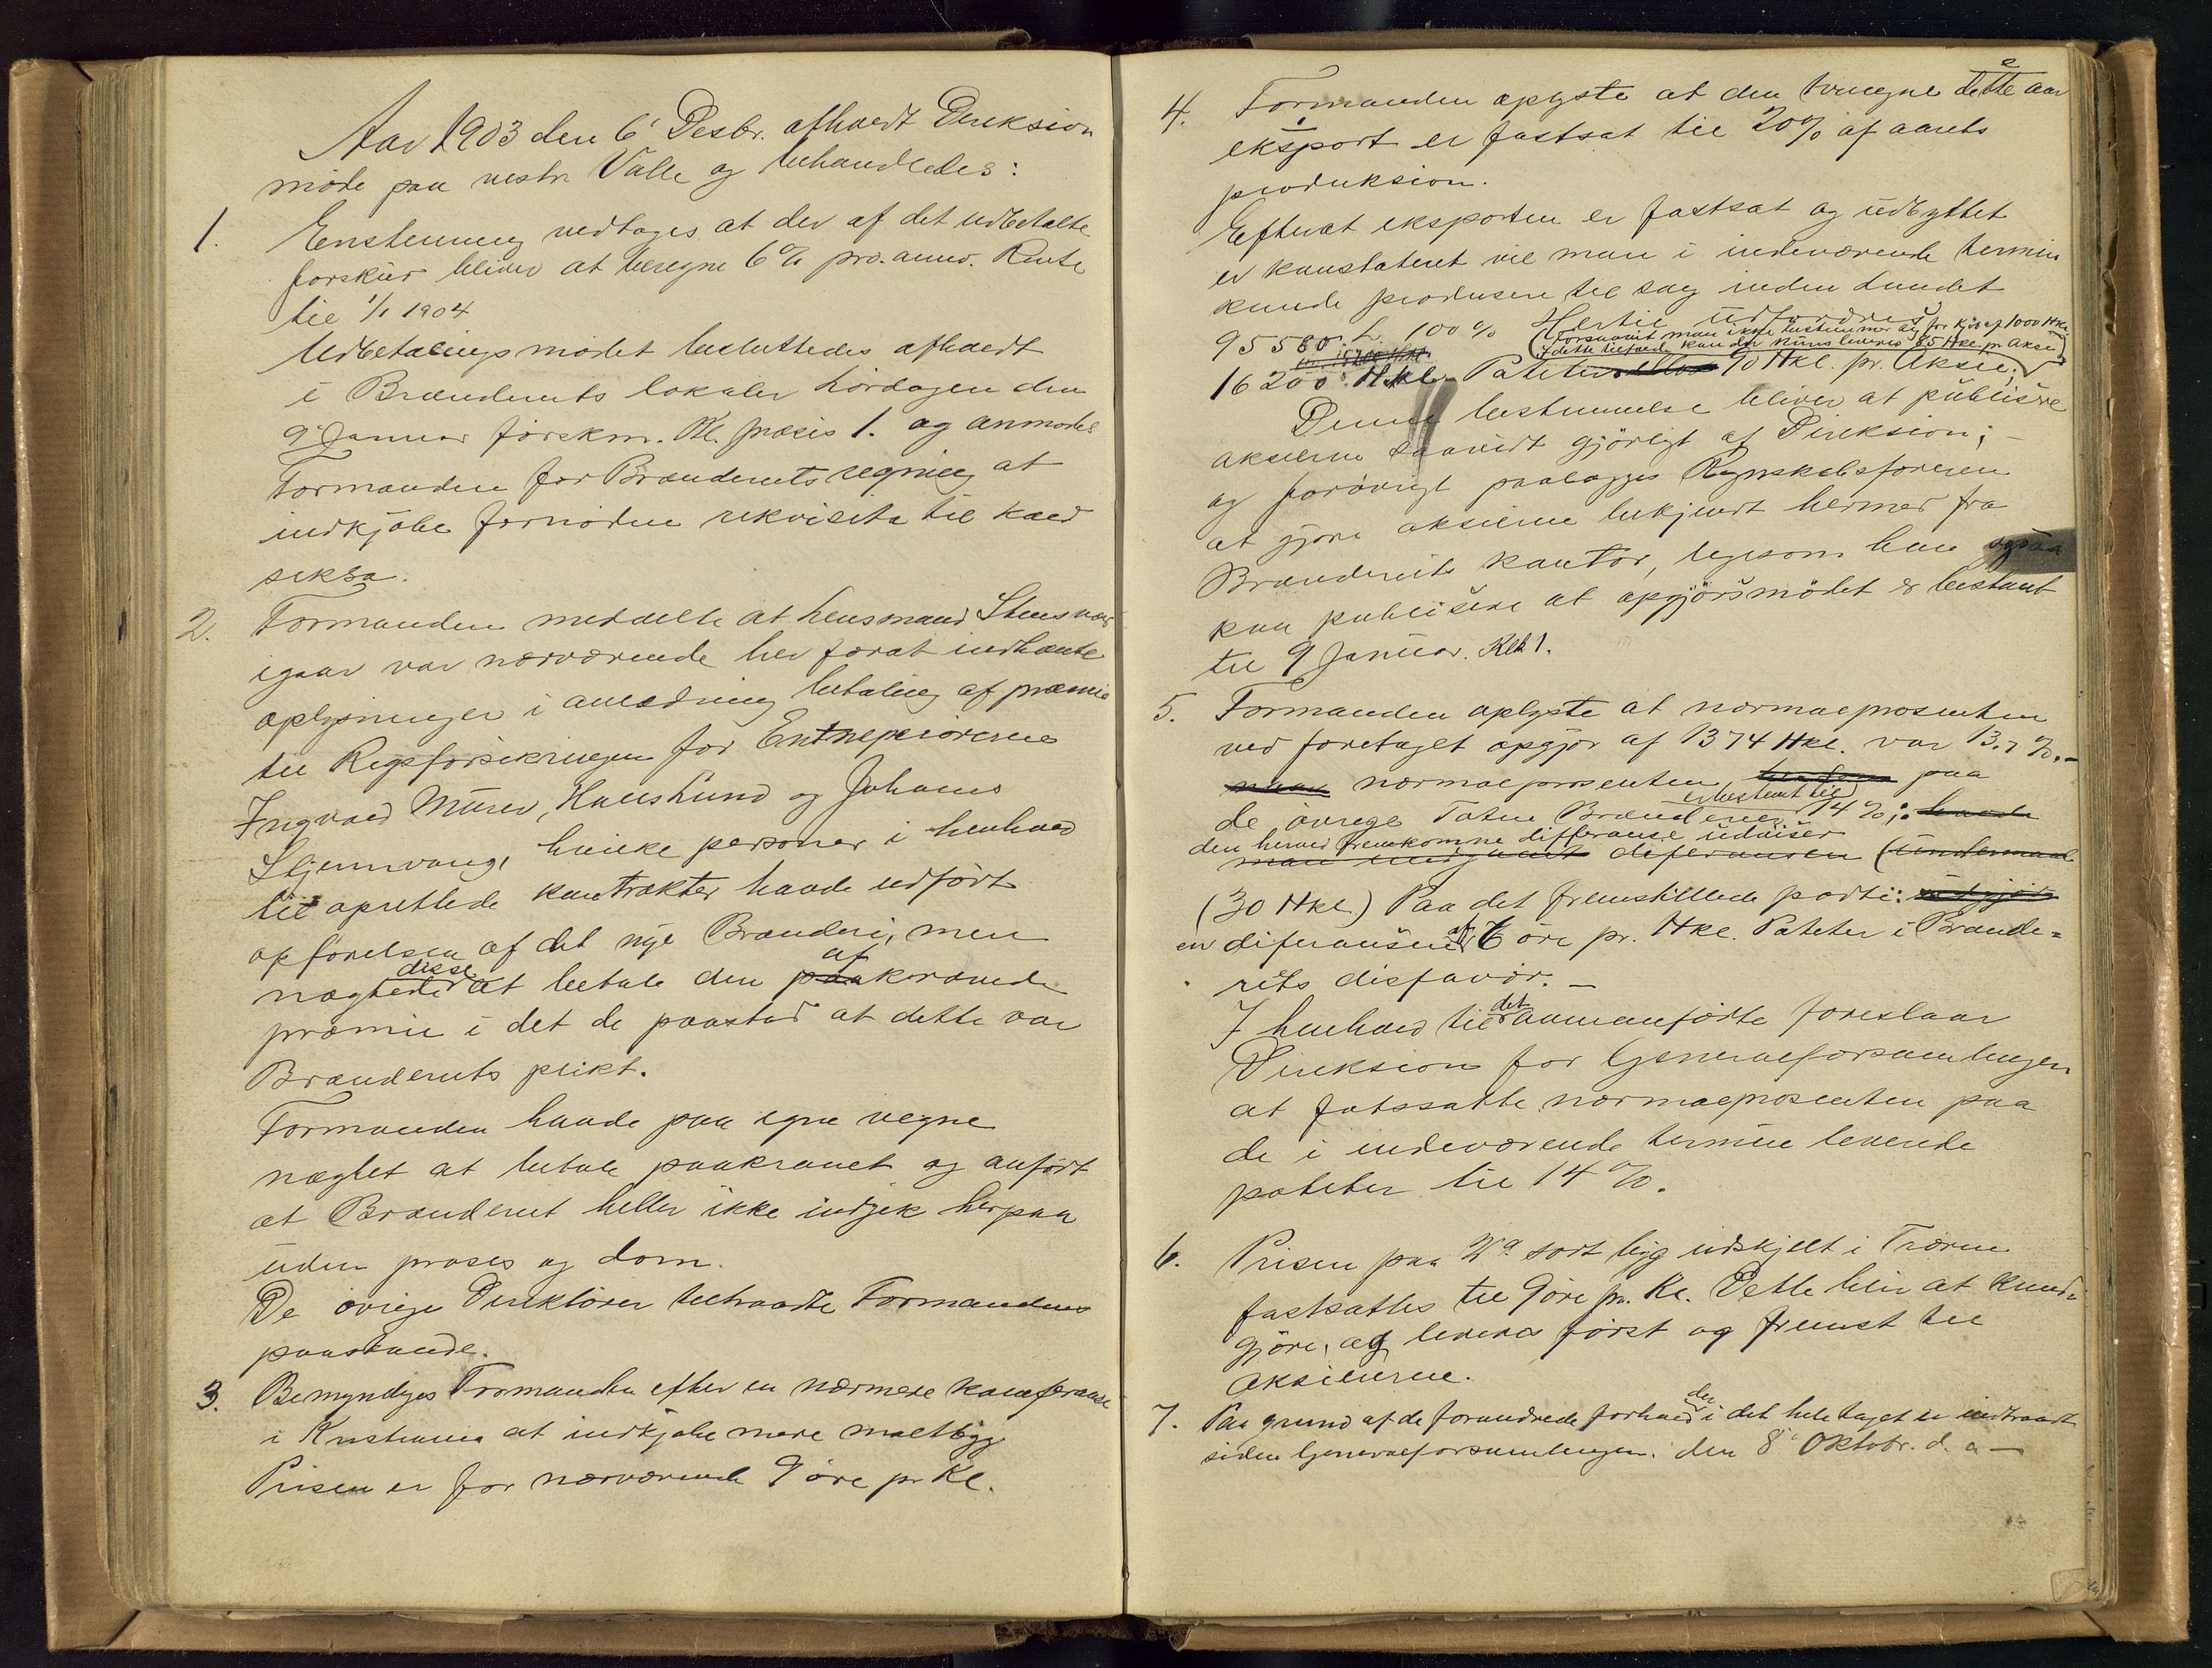 Aar 1903 den 6' Desbr. afholdt Direksion
møde paa vestr Valle og behandledes:
1. Enstemmig vedtoges at der af det udbetalte
forskud bliver at beregne 6% pro. anno. Rente
til 1/1 1904
Udbetalingsmødet besluttedes afholdt
i Brænderiets lokaler Lördagen den
9' Januar förskm. Kl. præsis 1. og anmodes
Formanden for Brænderiets regning at
indkjöbe fornödne rekvisita til kold
seksa.
2. Formanden meddelte at lensmand Stensvold
igaar var nærværende her forat indhente
oplysninger i anledning betaling af præmie
til Rigsforsikringen for Entrepriörerne
Ingvald Müren, Hans Lund og Johannes
Stjernvang, hvilke personer i henhold
til oprettede kontrakter havde udfört
opförelsen af det nye Brænderi, men
nægtede disse at betale den af paakrævede
præmie i det de paastod at dette var
Brænderiets plikt.
Formanden havde paa egne vegne
nægtet at betale paakravet og anfört
at Brænderiet heller ikke indgik herpaa
uden proses og dom.
De övrige Direktörer tiltraadte Formandens
paastande.
3. Bemyndiges Formanden efter en nærmere konferanse
i Kristiania at indkjøbe mere maltbyg
Prisen er for nærværende 9 öre pr Kl.
4. Formanden oplyste at den tvungne dette aar
eksport er fastsat til 20% af aarets
produksion.
Efterat eksporten er fastsat og udbyttet
er konstateret vil man i indeværende termin
kunde produsere til salg inden Landet
95580 L 100% Hertil udfordres
(forsaavidt man ikke bestemmer sig for kjöb af 1000 Hkl.
i dette tilfælde kan der kuns leveres 85 Hkl. pr Aksie)
16200 Hkl. Poteter 90 Hkl. pr. Aksie.
Denne bestemmelse bliver at publisere
aksieerne saavidt gjörligt af Direksion; —
og forövrigt paalægges Regnskabsföreren
at gjöre aksieerne bekjendt hermed fra
Brænderiets kontor, ligesom han ogsaa
kan publisere at opgjörsmödet er bestemt
til 9 Januar. Kl 1.
5. Formanden oplyste at normalprosenten
ved foretaget opgjör af 1374 Hkl. var 13.7%.—
normalprosenten, paa
de övrige Toten Brænderier er bestemt til 14%;
den herved fremkomne differanse udviser
diferansen
(30 Hkl.) Paa det fremstillede parti:
en diferanse af 6 öre pr. Hkl. Poteter i Brænde=
riets disfavör. —
I henhold til det ovenanförte foreslaar
Direksion for Generalforsamlingen
at fatssatte normalprosenten paa
de i indeværende termin leverede
poteter til 14%.
6. Prisen paa 2den sort byg udskjelt i Trören
fastsattes til 9 öre pr. Kl. Dette blir at kund=
gjöre, og leveres först og fremst til
Aksieierne.
7. Paa grund af de forandrede forhold der i det hele taget er indtraadt
siden Generalforsamlingen. den 8' Oktobr. d. a —